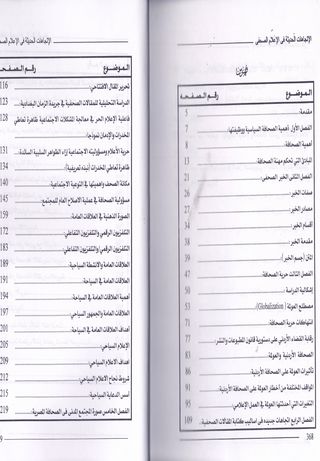 الإتجاهات الحديثة في الإعلام الصحفي
فهرس
الموضوع رقم الصفحة
مقدمة: 5
الفصل الأول: أهمية الصحافة السياسية ووظيفتها: 7
أهمية الصحافة: 8
المبادئ التي تحكم مهنة الصحافة: 13
الفصل الثاني الخبر الصحفي: 21
صفات الخبر: 26
مصادر الخبر: 27
أقسام الخبر: 34
مقدمة الخبر: 38
المتن (جسم الخبر): 39
الفصل الثالث حرية الصحافة: 47
إشكالية الدراسة: 50
مصطلح العولمة (Globalization): 53
انتهاكات حرية الصحافة: 71
رقابة القضاء الأردني على دستورية قانون المطبوعات والنشر: 77
الصحافة الأردنية والعولمة: 83
تأثيرات العولمة على الصحافة الأردنية: 86
المواقف المختلفة من أخطار العولة على الصحافة الأردنية: 91
التغيرات التي أحدثتها العولمة في العمل الإعلامي: 95
الفصل الرابع اتجاهات جديده في أساليب كتابة المقالات الصحفية: 109
368
الإتجاهات الحديثة في الإعلام الصحفي
الموضوع رقم الصفحة
تحرير المقال الافتتاحي: 116
الدراسة التحليلية للمقالات الصحفية في جريدة الزمان البغدادية: 123
فاعلية الإعلام الحر في معالجة المشكلات الاجتماعية ظاهرة تعاطي المخدرات والإدمان نموذجا: 128
حرية الأعلام ومسؤوليته الاجتماعية ازاء الظواهر السلبية السالبة: 131
ظاهرة تعاطي المخدرات (نبذه تعريفية): 134
مكانة الصحف واهميتها في التوعية الاجتماعية: 140
مسؤولية الصحافة في عملية الاصلاح العام للمجتمع: 145
الصورة الذهنية في العلاقات العامة: 159
التلفزيون الرقمي والتلفزيون التفاعلي: 172
التلفزيون الرقمي والتلفزيون التفاعلي: 183
العلاقات العامة والانشطة السياحية: 187
العلاقات العامة في السياحة: 191
أهمية العلاقات العامة في السياحة: 194
العلاقات العامة والجمهور السياحي: 197
أهداف العلاقات العامة في السياحة: 201
الإعلام السياحي: 205
أهداف الاعلام السياحي: 209
شروط نجاح الاعلام السياحي: 212
أسس الدعاية السياحية: 215
الفصل الخامس صورة المجتمع المدني في الصحافة المصرية: 219